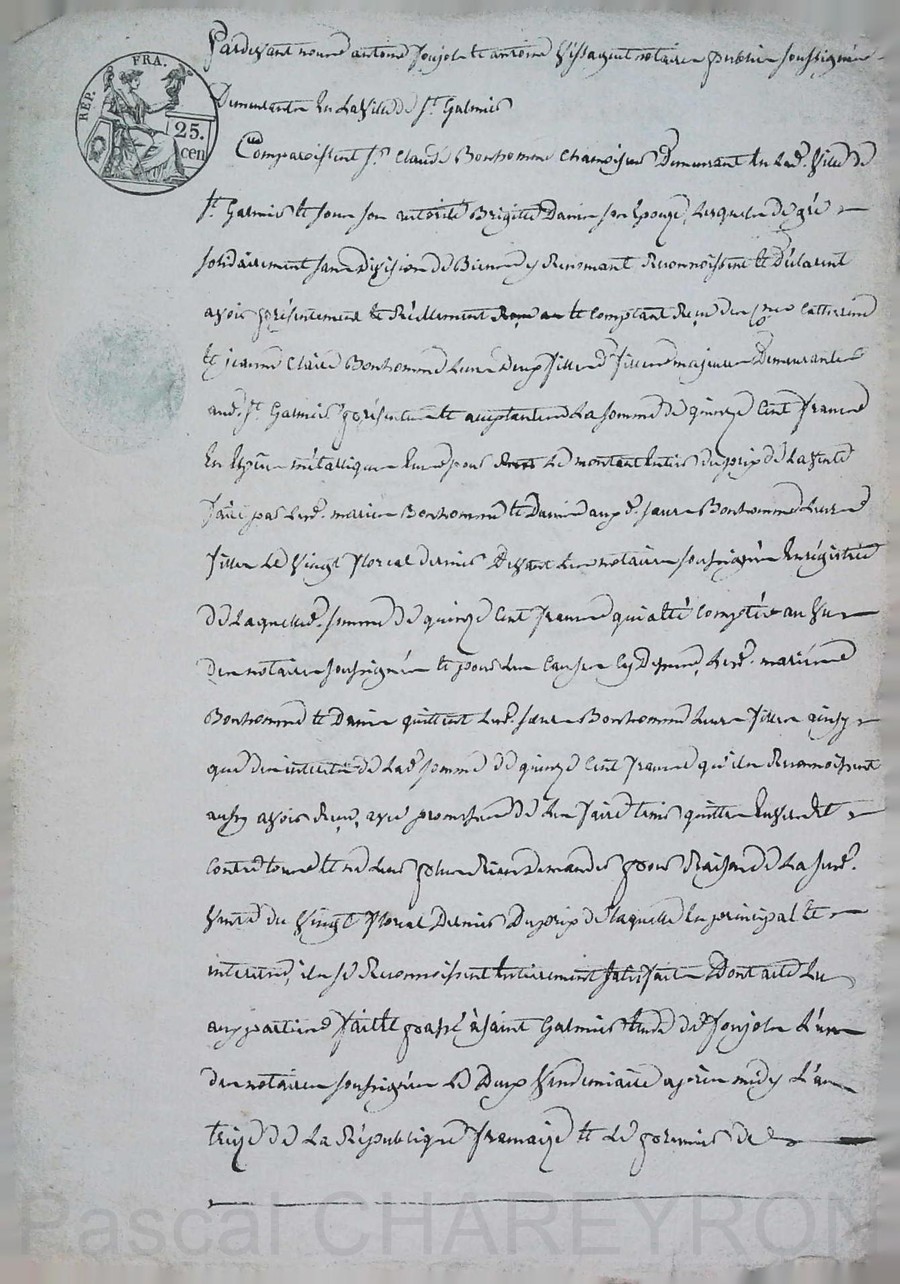 REP. FRA.
25.
cen
Pardevant nous antoine Joujole et antoine Vissaguet notaires publics soussignés
Demeurants En La Ville de St. Galmier
Comparoissent Sr. Claude Bonhomme chamoiseur Demeurant En Lad. Ville de
St. Galmier et sous son autorité Brigitte Damin son Epouse, Lesquels de gré
solidairement sans division de Biens y Renonçant Reconnoissent et Déclarent
avoir présentement et Réellement et comptant Reçu des Catherine
et jeanne Claire Bonhomme Leurs Deux filles majeures Demeurantes
aud. St. Galmier présentes et acceptantes La somme de quinze Cent francs
En Espèces métalliques Eure pour Le montant Entier du prix de La Vente
faite par Lesd. mariés Bonhomme et Damin auxd. sœurs Bonhomme Leurs
filles Le Vingt floreal dernier Devant Les notaires soussignés Enregistrée
de Laquelle. somme de quinze Cent francs qui a Eté Comptée au Vu
des notaires soussignés et pour Les Causes Cy Dessus, Lesd. mariés
Bonhomme et Damin quittent Lesd. sœurs Bonhomme Leurs filles ainsy
que des interêts de Lad. somme de quinze Cent francs qu'ils Reconnoissent
aussy avoir Reçu, avec promesse de Les faire tenir quittes Envers Et
Contre tous et ne Leur plus Rien Demander pour Raison de La susd.
Vente du Vingt floreal Dernier Du prix de laquelle En principal et
interêts, ils se Reconnoissent Entierement satisfaits Dont acte Lu
aux parties fait et passé à Saint Galmier Etude de Joujole L'un
des notaires soussignés Le Deux Vendemiaire après midy L'an
treize de La République française et Le premier de
Pascal CHAREYRON